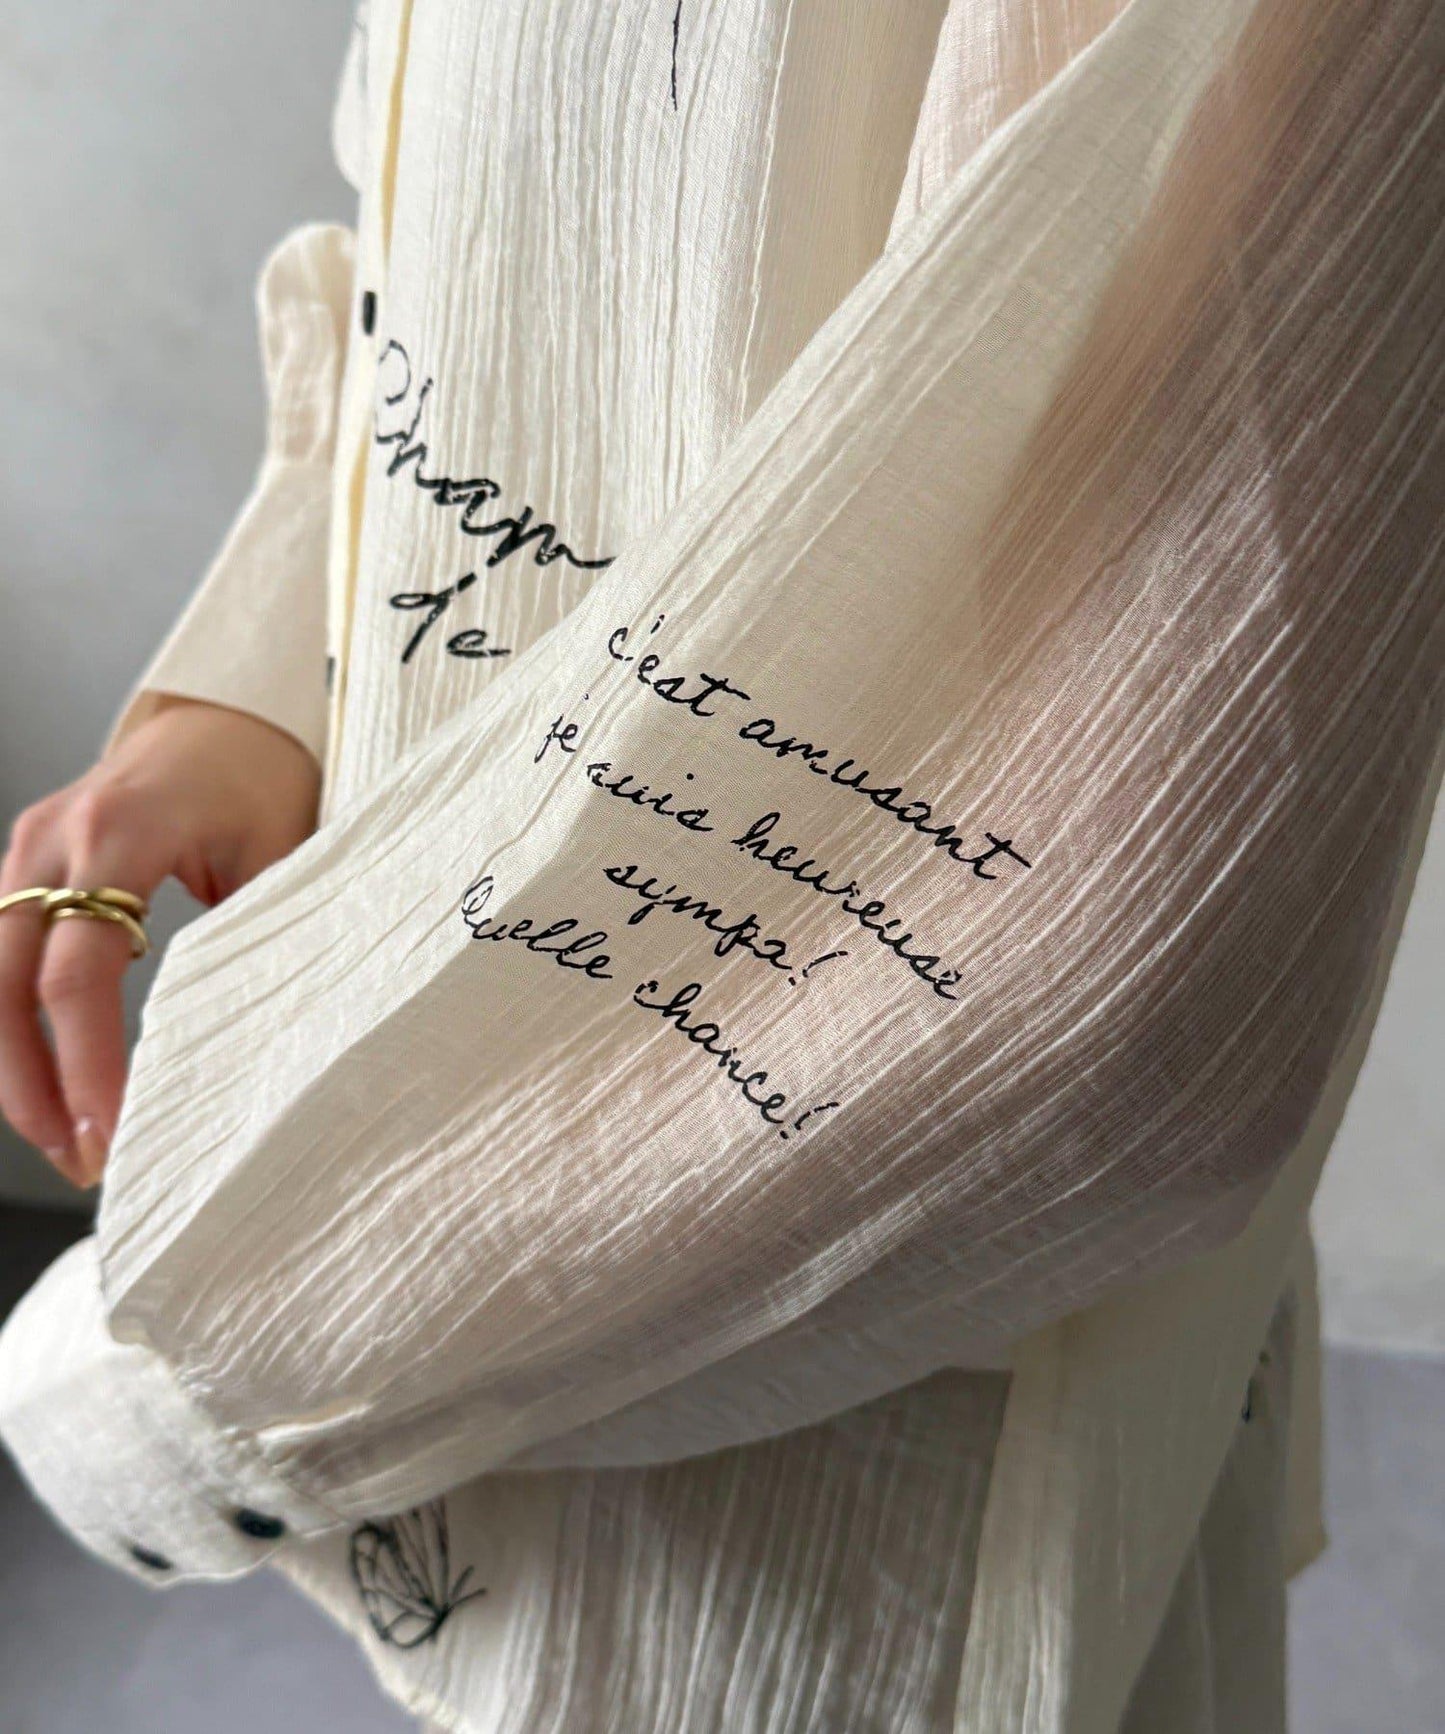 de
c'est amusant
je suis heureuse
sympa!
Quelle chance!